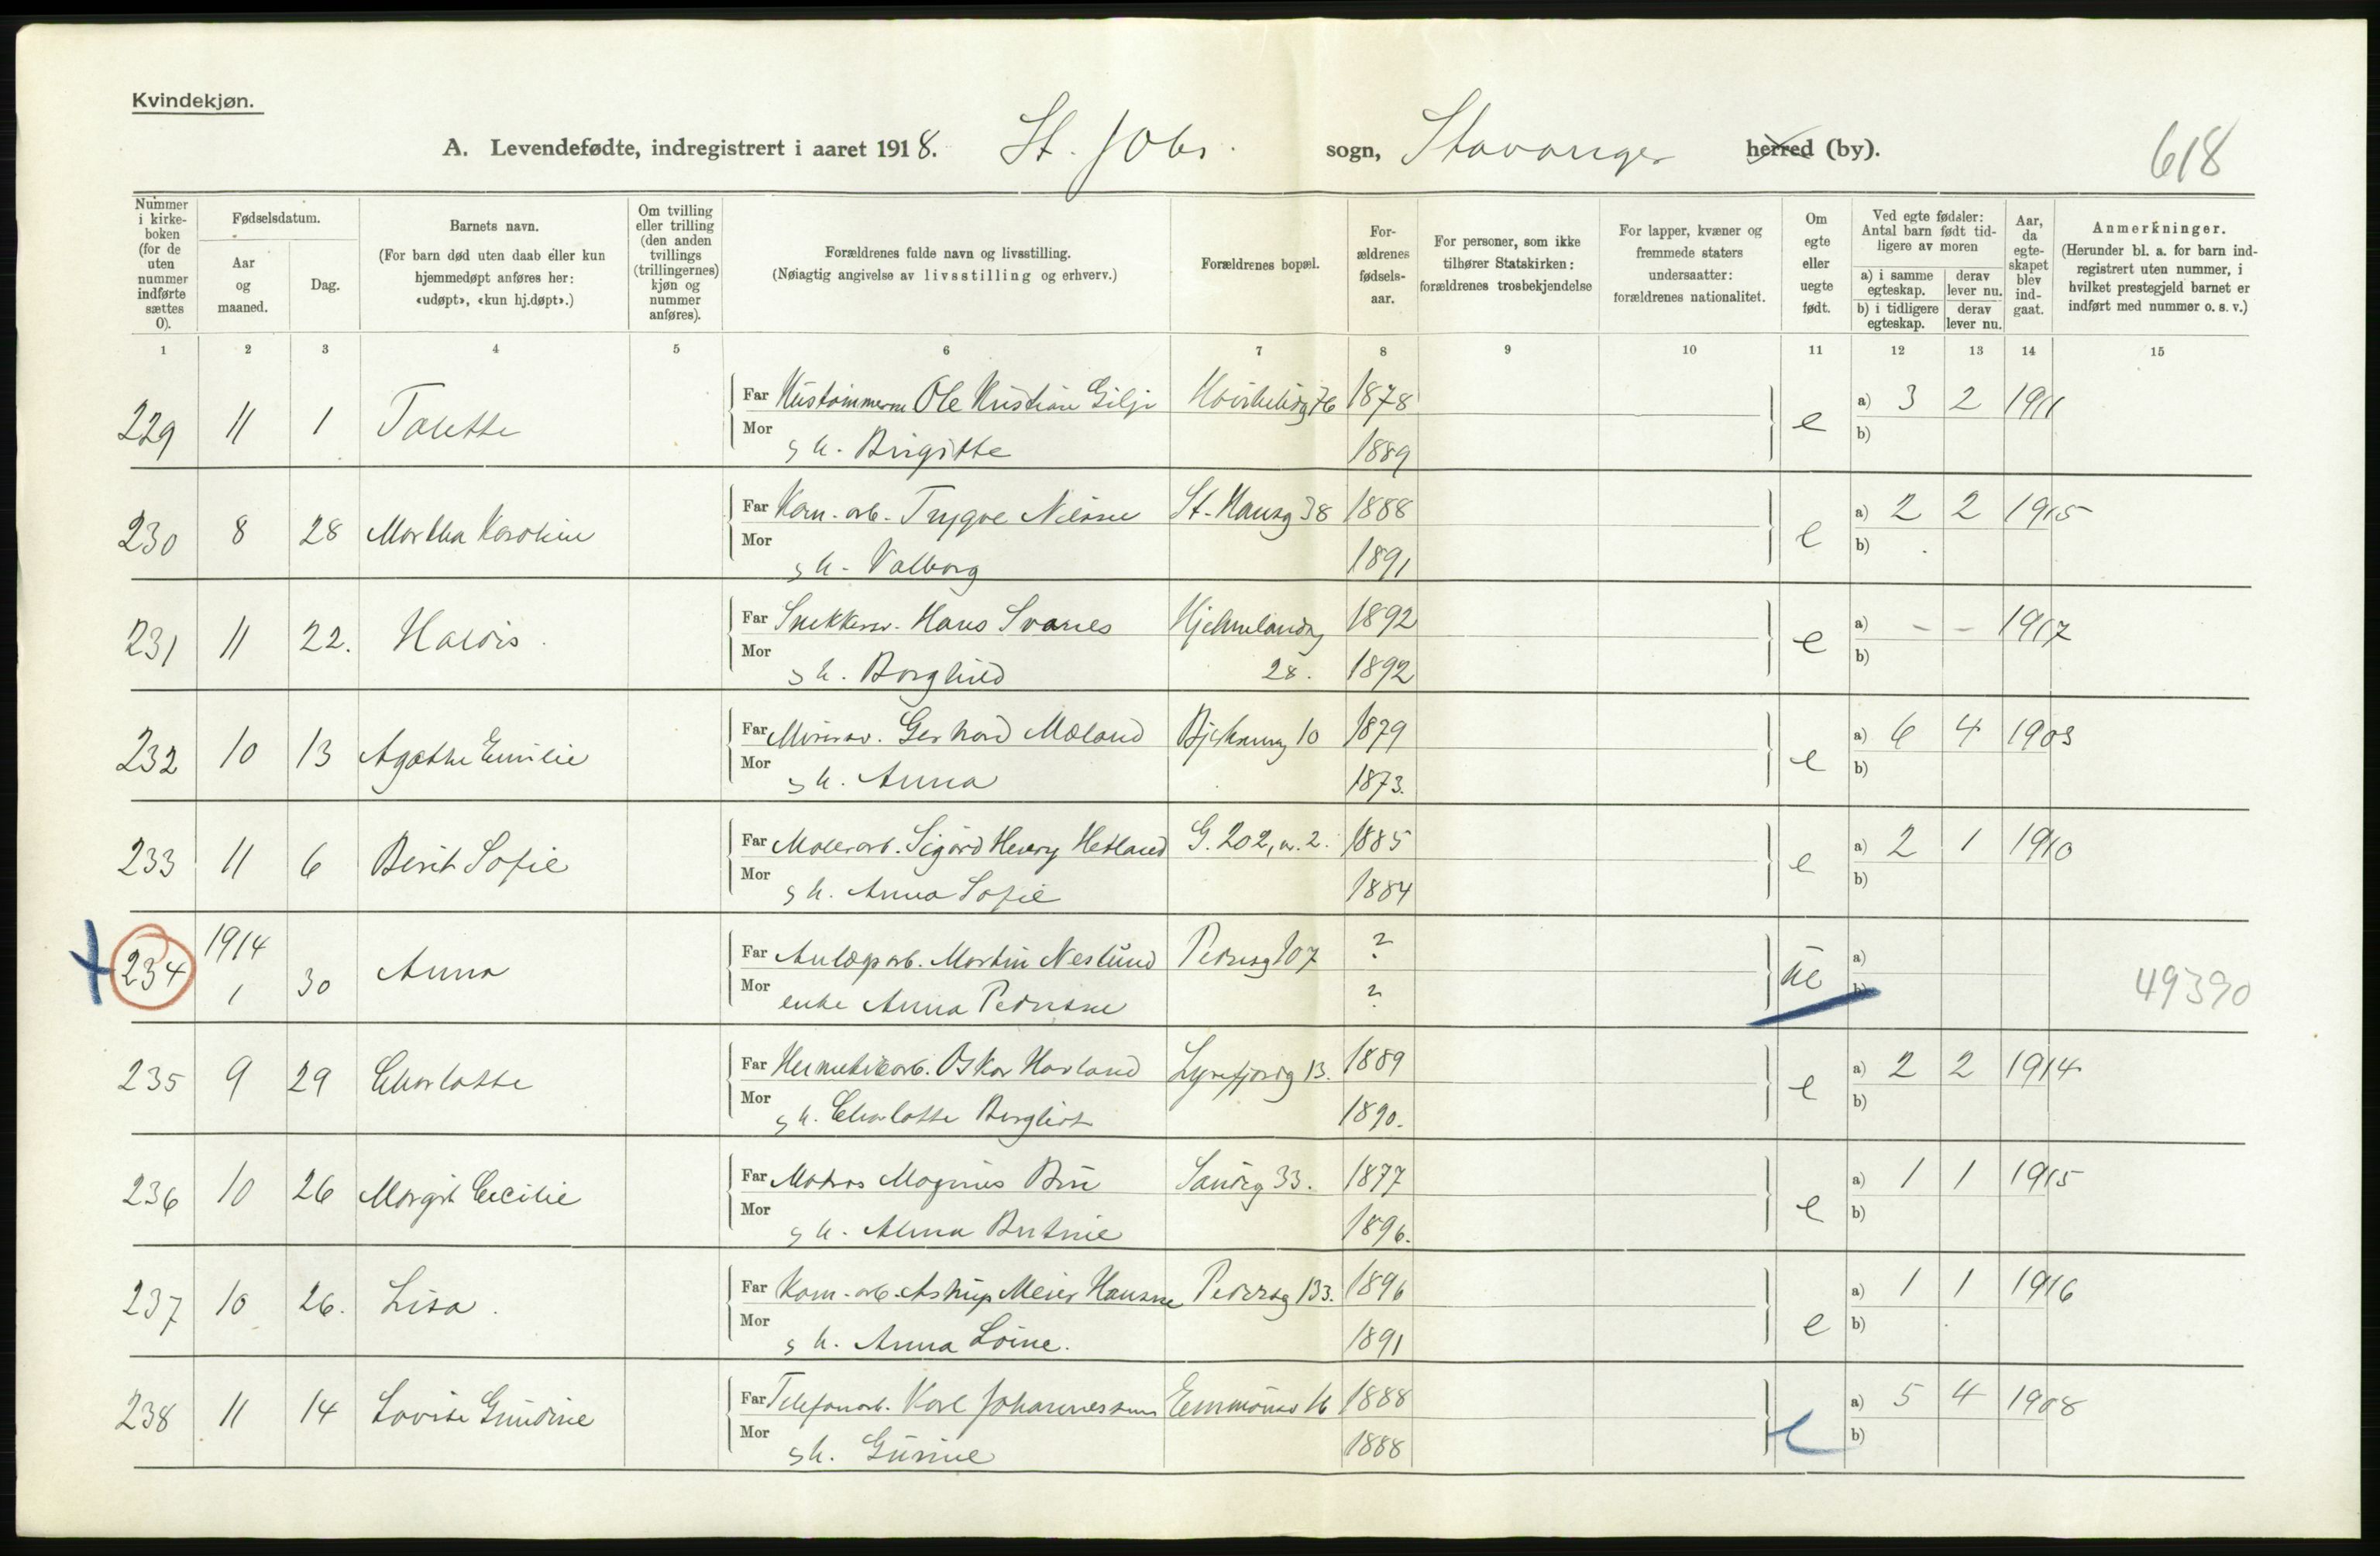 Kvindekjøn.
A. Levendefødte, indregistrert i aaret 1918. St. Johs. sogn, Stavanger herred (by).
618
Nummer i kirke-boken (for de uten nummer indførte sættes 0).
Fødselsdatum.
Aar og maaned.
Dag.
Barnets navn.
(For barn død uten daab eller kun hjemmedøpt anføres her: «udøpt», «kun hj.døpt».)
Om tvilling eller trilling (den anden tvillings (trillingernes) kjøn og nummer anføres).
Forældrenes fulde navn og livsstilling.
(Nøiagtig angivelse av livsstilling og erhverv.)
Forældrenes bopæl.
For-ældrenes fødsels-aar.
For personer, som ikke tilhører Statskirken: forældrenes trosbekjendelse
For lapper, kvæner og fremmede staters undersaatter: forældrenes nationalitet.
Om egte eller uegte født.
Ved egte fødsler: Antal barn født tid-ligere av moren
a) i samme egteskap.
derav lever nu.
b) i tidligere egteskap.
derav lever nu.
Aar, da egte-skapet blev ind-gaat.
Anmerkninger.
(Herunder bl. a. for barn ind-registrert uten nummer, i hvilket prestegjeld barnet er indført med nummer o. s. v.)
1 2 3 4 5 6 7 8 9 10 11 12 13 14 15
229 11 1 Far Ole Kristian Gilje 76 1878 e a) 3 2 1911
Mor s h. Birgitte 1889 b)
230 8 28 Martha Karoline Far Kom. arb. Trygve Nilssen St. Hansg 38 1888 e a) 2 2 1915
Mor s h. Valborg 1891 b)
231 11 22. Haldis. Far Hans Svanes Hjelmelandsg 1892 e a) - - 1917
Mor s h. Borghild 28. 1892 b)
232 10 13 Agathe Emilie Far Gerhard Mæland 10 1879 e a) 6 4 1903
Mor s h. Anna 1873. b)
233 11 6 Berit Sofie Far Malerarb. Sigurd Henry Hetland G. 202, n. 2. 1885 e a) 2 1 1910
Mor s h. Anna Sofie 1884 b)
234 1914 1 30 Anna Far Anlægsarb. Martin Neslund Pedersg 107 ? ue a)
Mor enke Anna Pedersen ? b) 49390
235 9 29 Charlotte Far Hermetikarb. Oskar Havland Lysefjordg 13. 1889 e a) 2 2 1914
Mor s h. Charlotte Bergliot 1890. b)
236 10 26 Margit Cecilie Far Matros Magnus Bru Sandeg 33. 1877 e a) 1 1 1915
Mor s h. Alma 1896. b)
237 10 26. Lisa. Far Kom. arb. Astrup Meier Hansen Pedersg 133. 1896 e a) 1 1 1916
Mor s h. Anna Lovine. 1891 b)
238 11 14 Lovise Gundine Far Telefonarb. Karl Johannessen 16 1888 e a) 5 4 1908
Mor s h. Gurine 1888 b)